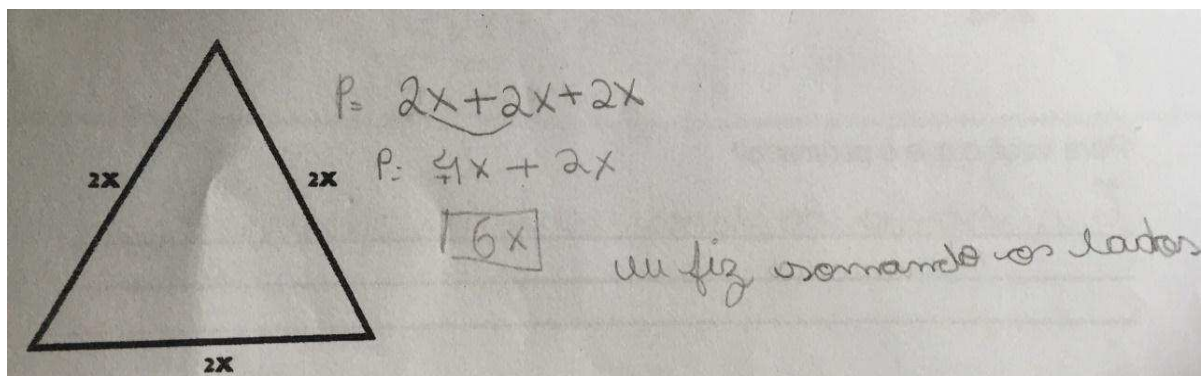 P= 2x+2x+2x
P= 4x + 2x
2X
2X
6x
eu fiz somando os lados
2X